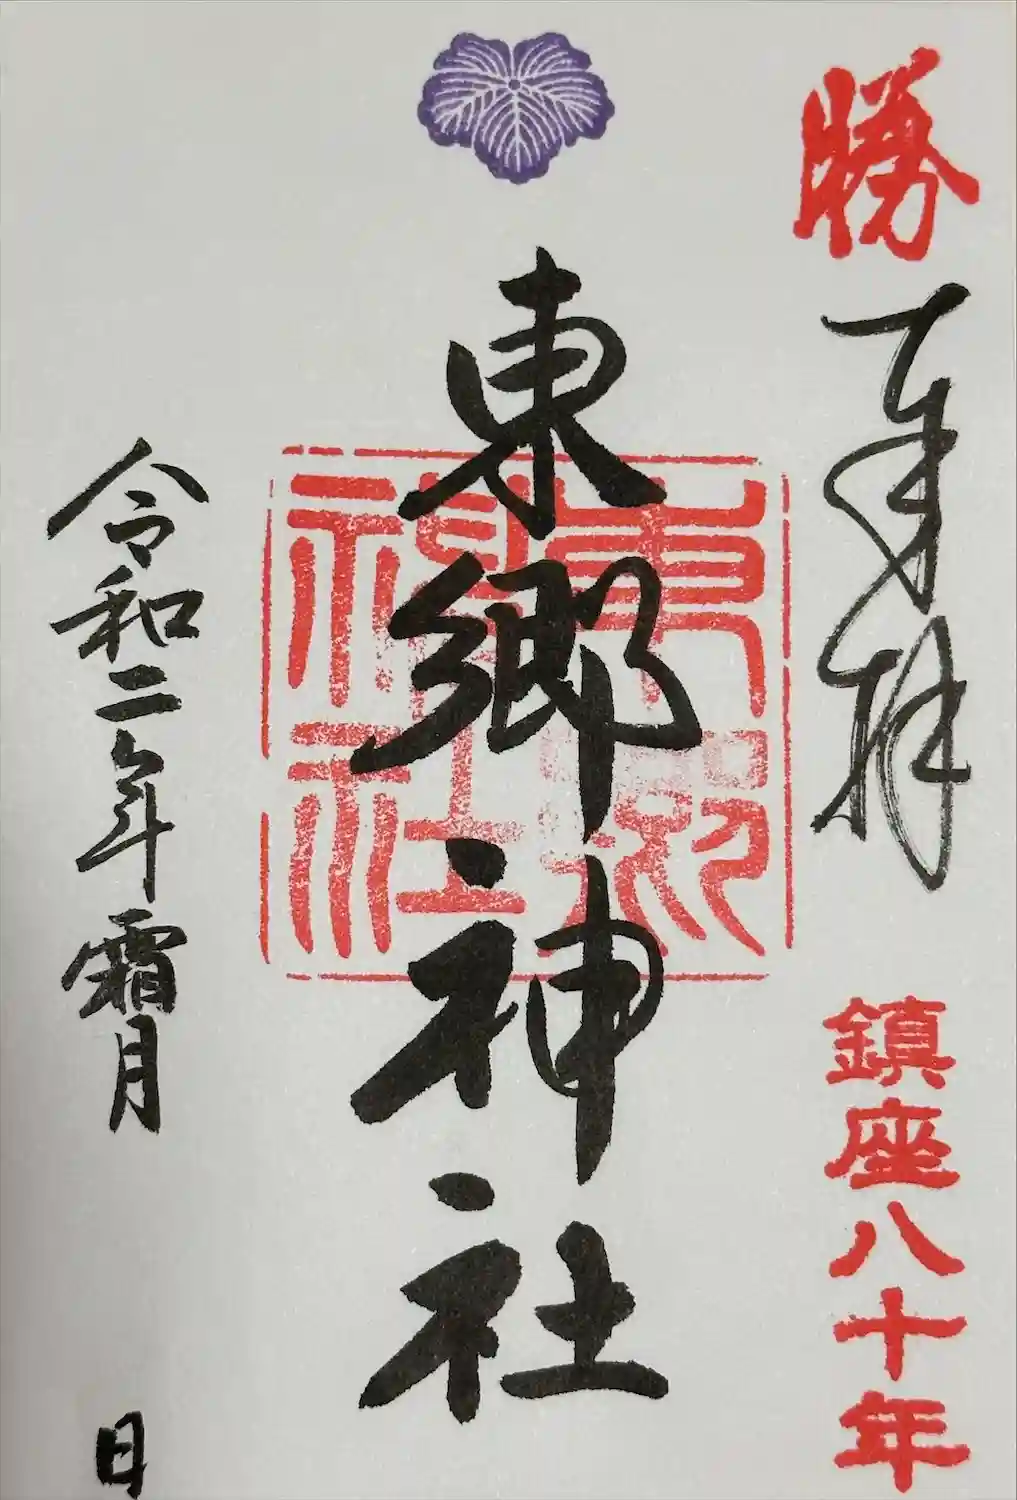 勝
奉拝
鎮座八十年
東郷神社
東郷神社
令和二年霜月 日